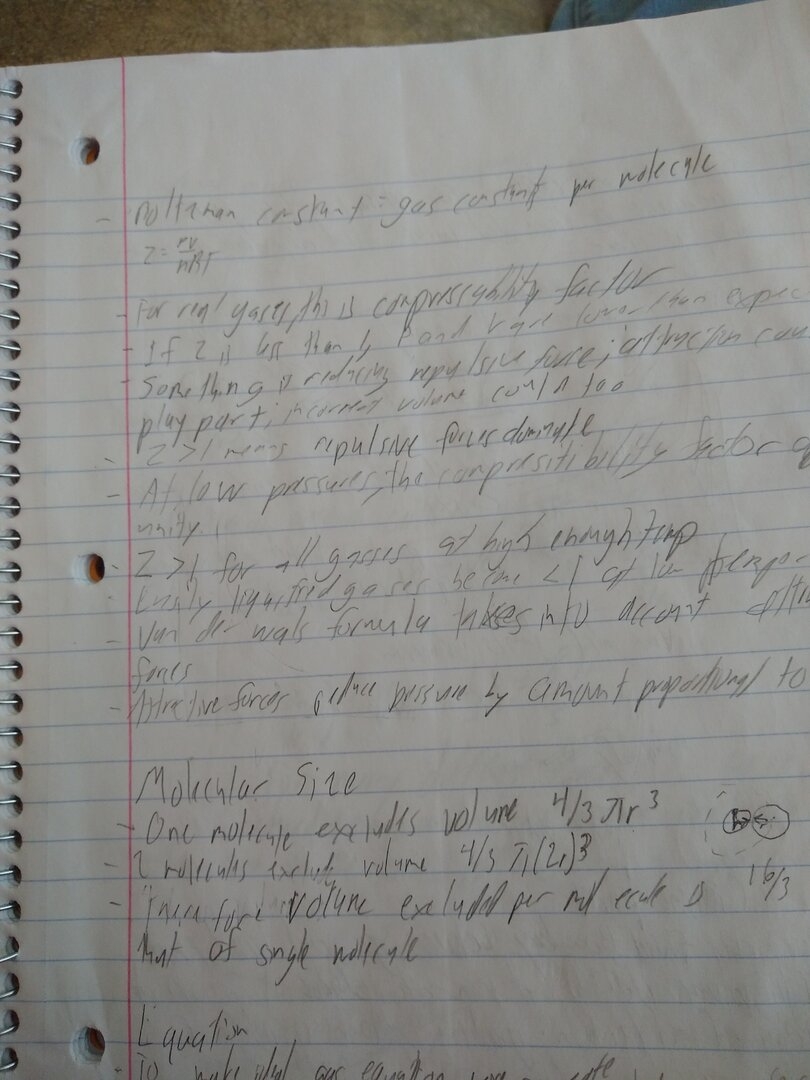 - Boltzman constant = gas constant per molecule
Z = PV/nRT
- For real gases, this is compressability factor
- If Z is less than 1, P and V are lower than expec
Something is reducing repulsive force; attraction cou
play part; incorrect volume could too
- Z > 1 means repulsive forces dominate
- At low pressures, the compresitibility factor
unity.
- Z > 1 for all gasses at high enough temp
- Easily liquified gases become < 1 at low temp or
- Van der wals formula takes into account attra
forces
- Attractive forces reduce pressure by amount proportional to
Molecular Size
- One molecule excludes volume 4/3 πr³
- 2 molecules exclude volume 4/3 π(2r)³
- Therefore volume excluded per molecule is 16/3
that of single molecule
Equation
- To make ideal gas equation